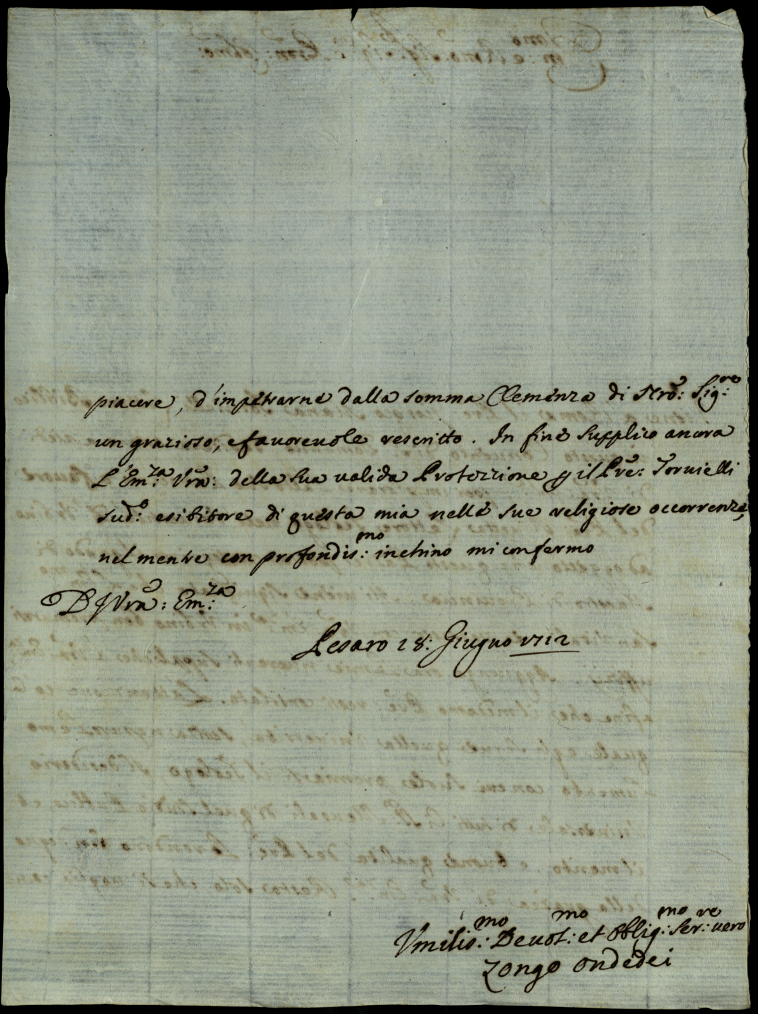 piacere, d'impetrarne dalla somma Clemenza di Nro: Sig:re
un grazioso, e favorevole rescritto. In fine supplico ancora
L'Em:za Vra: della sua valida Protezzione p il Pre: Tornielli
sud:o esibitore di questa mia nelle sue religiose occorrenze,
nel mentre con profondis:mo inchino mi confermo
D Vra: Em:za
Pesaro 28: Giugno 1712
Vmilis:mo Devot:mo et Oblig:mo Ser:re vero
Zongo Ondedei